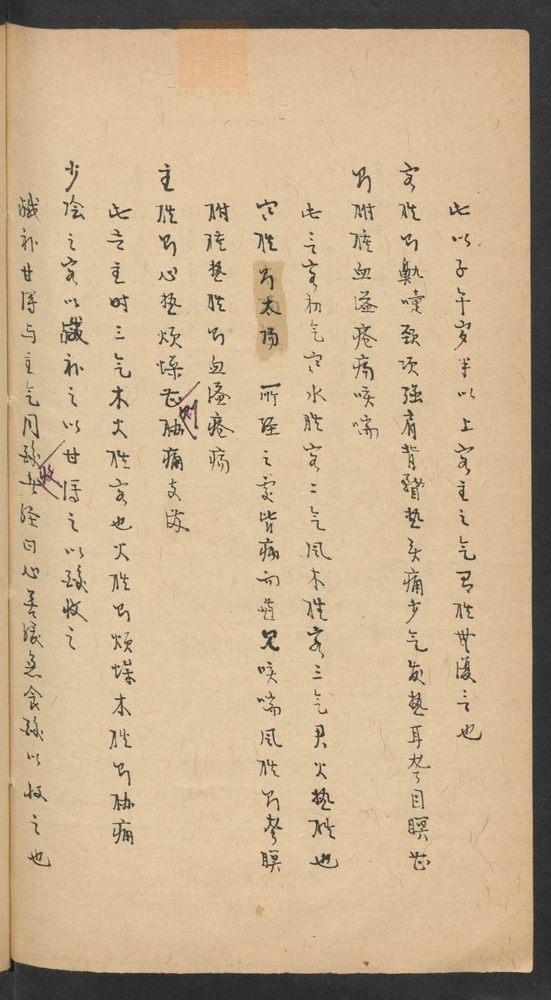 此以子午岁半以上客主之气有胜無復言也
客胜則鼽嚏颈项强肩背瞀热头痛少气发热耳聋目瞑甚
則胕肿血溢疮疡咳喘
此言客初气寒水胜客二气风木胜客三气君火热胜也
寒胜則太陽所经之處皆病而兼见咳喘风胜則聋瞑
胕肿热胜則血溢疮疡
主胜則心热烦燥甚則胁痛支滿
此言主时三气木火胜客也火胜則烦燥木胜則胁痛
少陰之客以鹹補之以甘泻之以酸收之
鹹補甘泻与主气同酸收经曰心苦缓急食酸以收之也